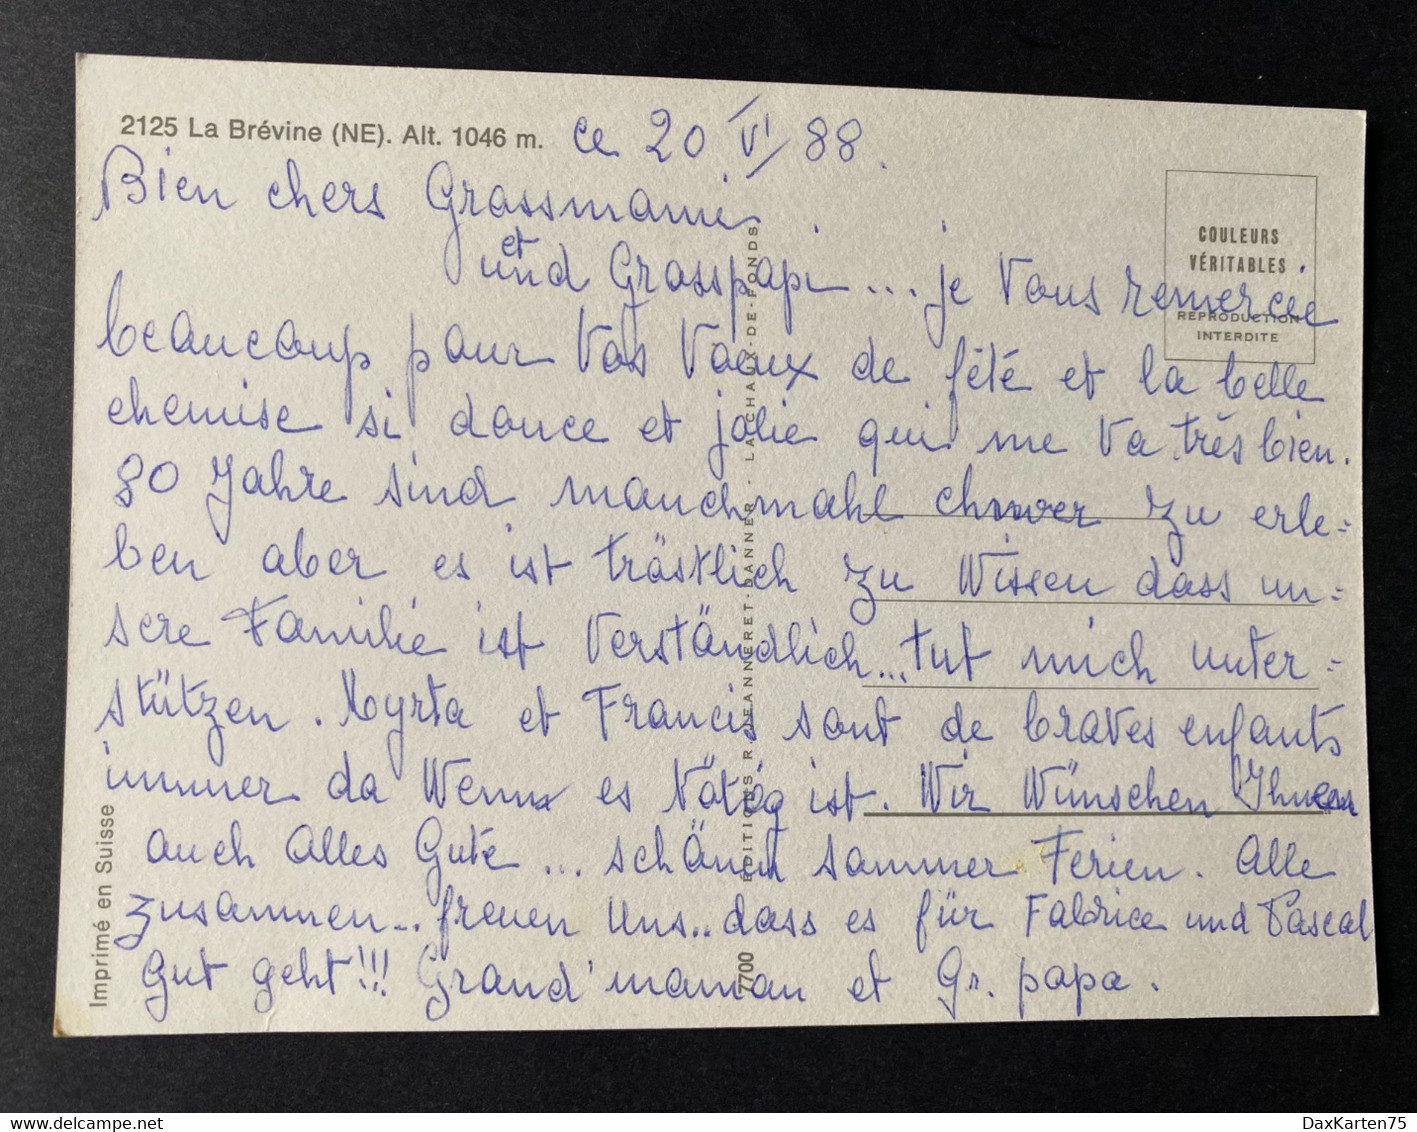 2125 La Brévine (NE). Alt. 1046 m. ce 20 VI/88.
Bien chers Grossmami
et
und Grosspapi ... je Vous remercie
beaucoup pour Vos Voeux de fété et la belle
chemise si douce et jolie qui me va très bien.
80 Jahre sind manchmahl chwer zu erle=
ben aber es ist tröstlich zu Wissen dass un=
sere Familie ist Verständlich... tut mich unter=
stützen. Myrta et Francis sont de braves enfants
immer da Wenn es Nötög ist. Wir Wünschen Ihnen
auch Alles Gute ... schönen sommer Ferien. Alle
zusammen.. freuen uns.. dass es für Fabrice und Pascal
Gut geht!!! Grand'maman et Gr. papa.
COULEURS
VÉRITABLES
REPRODUCTION
INTERDITE
Imprimé en Suisse
7700 ÉDITIONS R. JEANNERET-DANNER - LA CHAUX-DE-FONDS
DaxKarten75